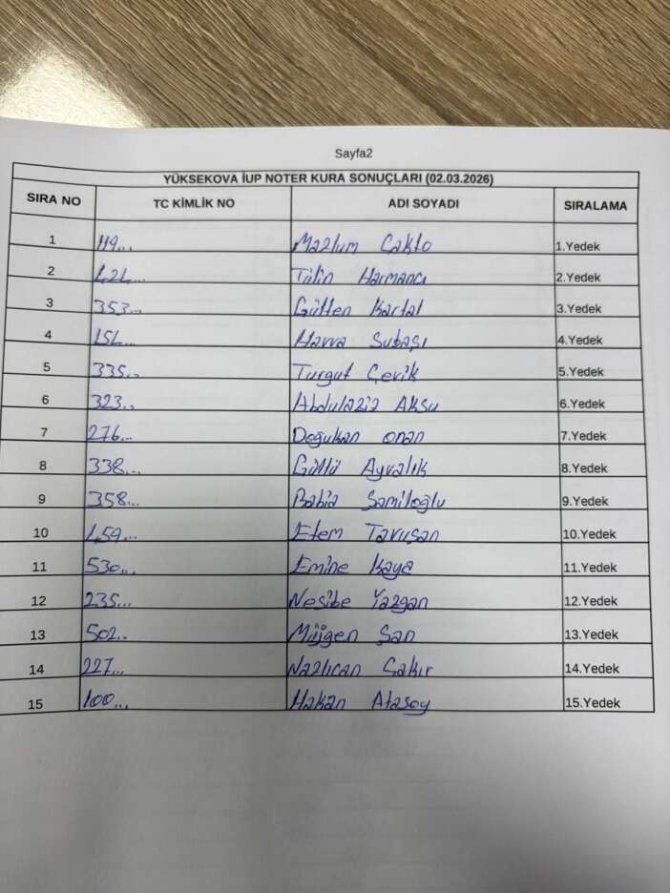 Sayfa2
YÜKSEKOVA İUP NOTER KURA SONUÇLARI (02.03.2026)
SIRA NO TC KİMLİK NO ADI SOYADI SIRALAMA
1 119... Mazlum Çakto 1.Yedek
2 424... Tülin Harmancı 2.Yedek
3 353... Gülten Kartal 3.Yedek
4 151... Havva Subaşı 4.Yedek
5 335... Turgut Çevik 5.Yedek
6 323.. Abdulaziz Aksu 6.Yedek
7 276... Doğukan onan 7.Yedek
8 338... Güllü Ayvalık 8.Yedek
9 358... Rabia Şamiloğlu 9.Yedek
10 159... Etem Tavuşan 10.Yedek
11 530... Emine Kaya 11.Yedek
12 235... Nesibe Yazgan 12.Yedek
13 502.. Müjgen Şan 13.Yedek
14 227... Nazlıcan Çakır 14.Yedek
15 100... Hakan Atasoy 15.Yedek